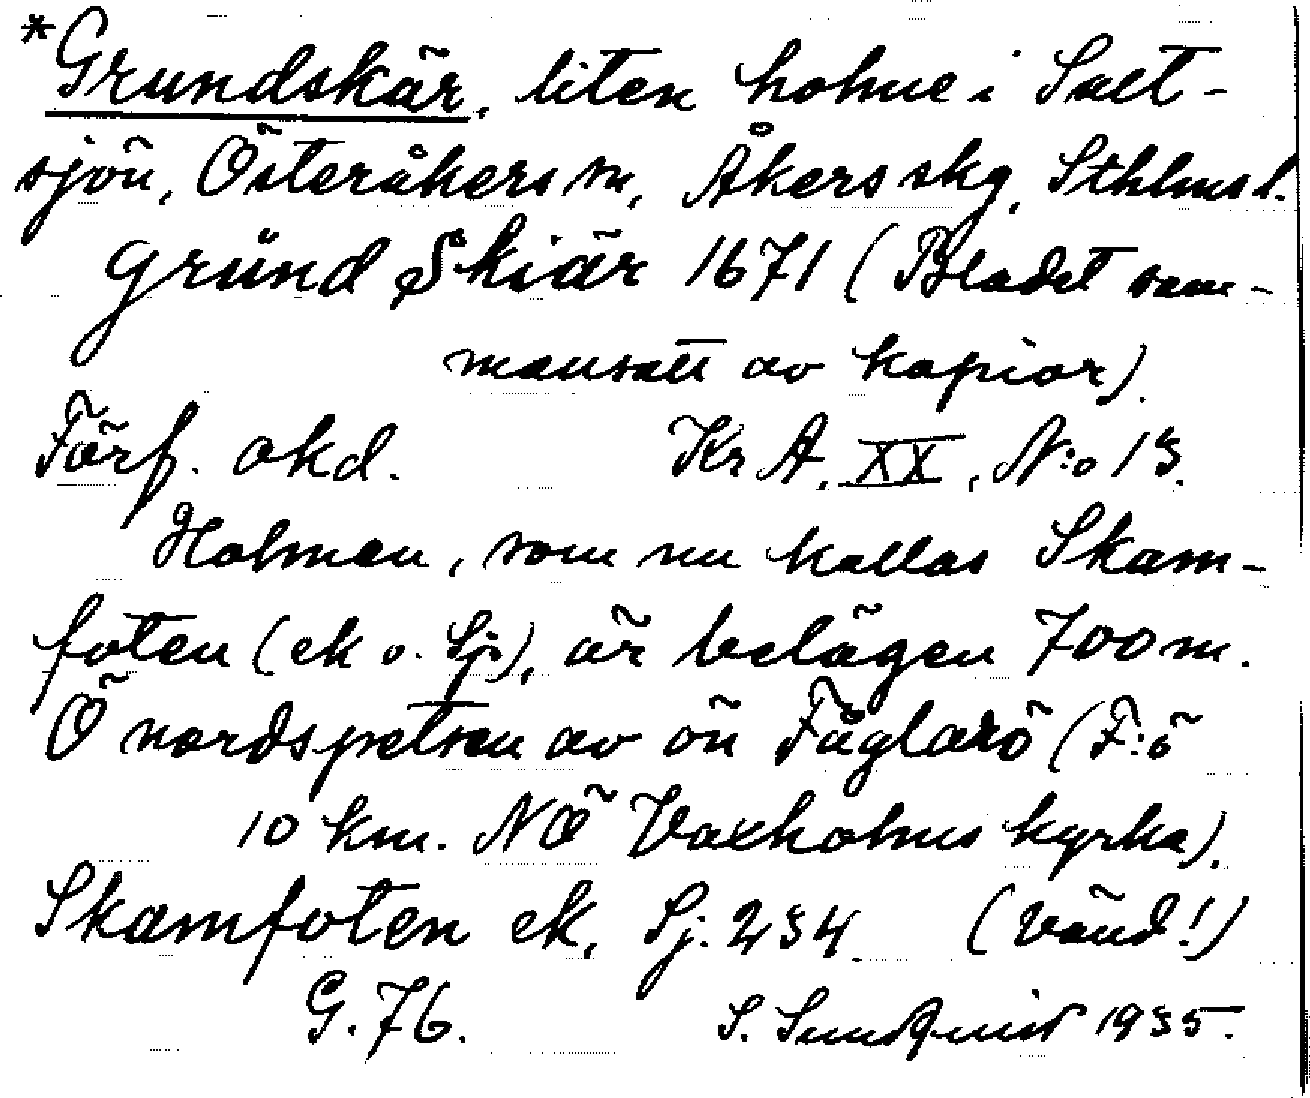 *Grundskär, liten holme i Salt-
sjön, Österåkers sn, Åkers skg, Sthlms l.
Gründ Skiär 1671 (Bladet sam-
mansatt av kopior).
Förf. okd. Kr A, XX, N:o 13.
Holmen, som nu kallas Skam-
foten (ek o. Sj), är belägen 700 m.
Ö nordspetsen av ön Fåglarö (F:ö
10 km. NÖ Vaxholms kyrka).
Skamfoten ek, Sj. 234 (Vänd!)
G. 76. S. Sundquist 1935.